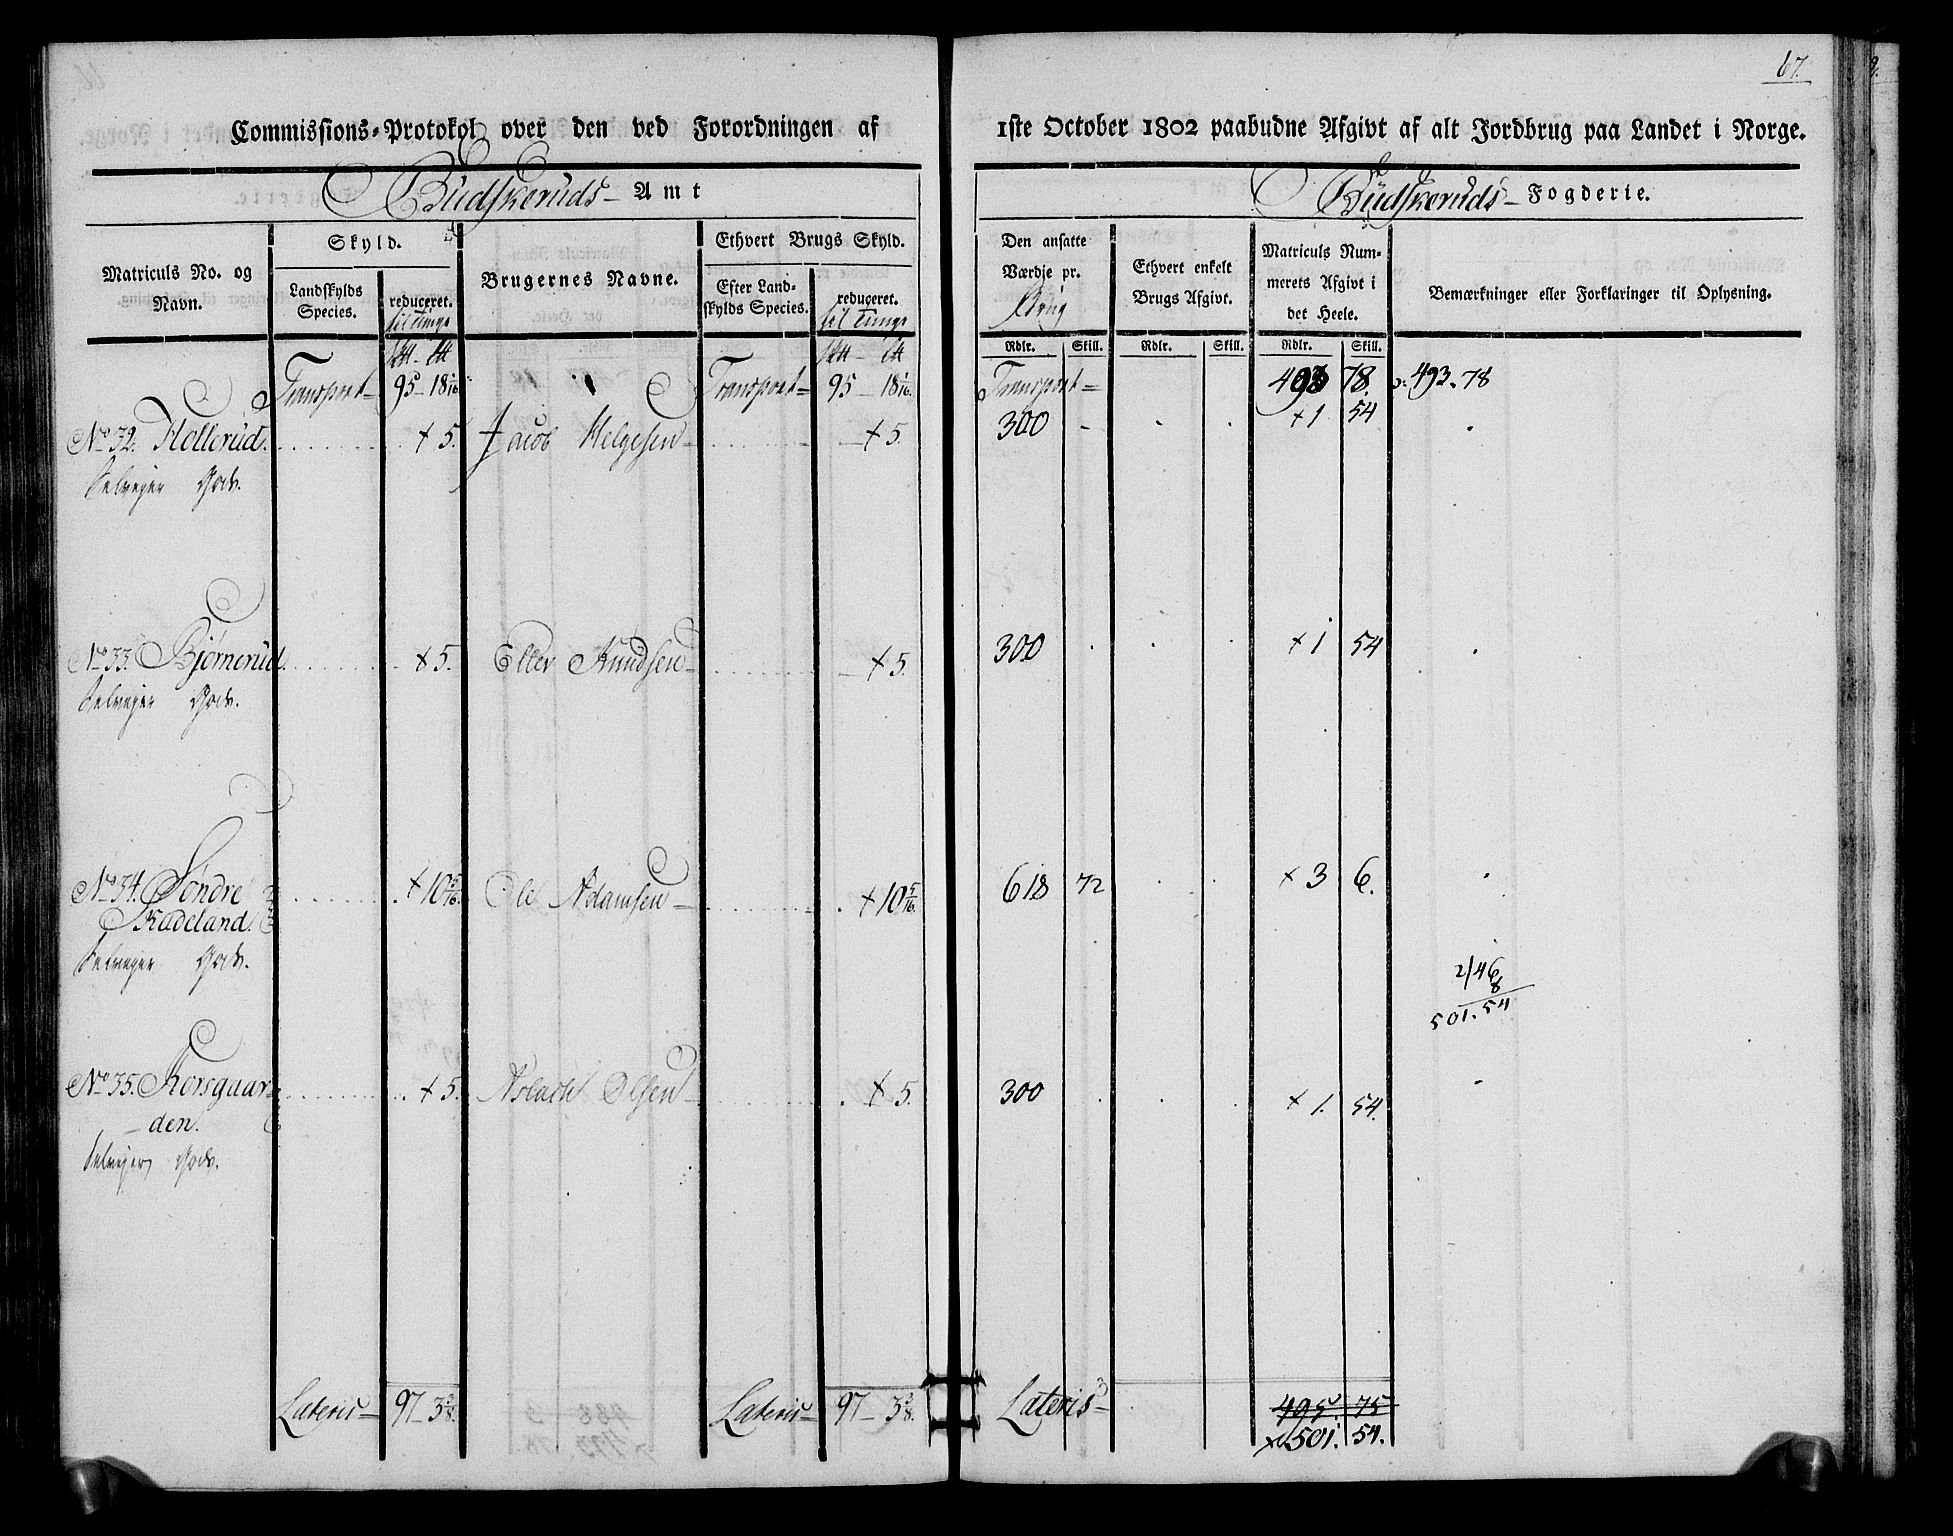 67.
Commissions-Protokol over den ved Forordningen af 1ste October 1802 paabudne Afgivt af alt Jordbrug paa Landet i Norge.
Budskeruds Amt
Budskeruds Fogderie.
Matriculs No. og Navn.
Skyld.
Landskylds Species.
reduceret.
til Tunge
Brugernes Navne.
Ethvert Brugs Skyld.
Efter Landskylds Species.
reduceret.
til Tunge
Den ansatte Værdje pr.
Brug
Ethvert enkelt Brugs Afgivt.
Matriculs Nummerets Afgivt i det Heele.
Bemærkninger eller Forklaringer til Oplysning.
Rdlr. Skill. Rdlr. Skill. Rdlr. Skill.
Transport 95 - 18 1/16 Transport 95 - 18 1/16 Transport 493 78. 493. 78
No 32. Hellerud. + 5. Jacob Helgesen + 5. 300 - + 1 54
Selvejer Gods.
No 33 Bjørnerud + 5. Eller Knudsen + 5. 300 + 1 54
Selvejer Gods.
No 34. Søndre Kadeland. + 10 5/16. Ole Adamsen + 10 5/16. 618 72 + 3 6.
Selvejer Gods.
2/46
8
501. 54
No 35. Korsgaarden. + 5. Aslach Olsen + 5. 300 + 1. 54.
Selvejer Gods.
Lateris 97 - 3 3/8. Lateris 97 - 3 3/8. Lateris 495. 75
501. 54.